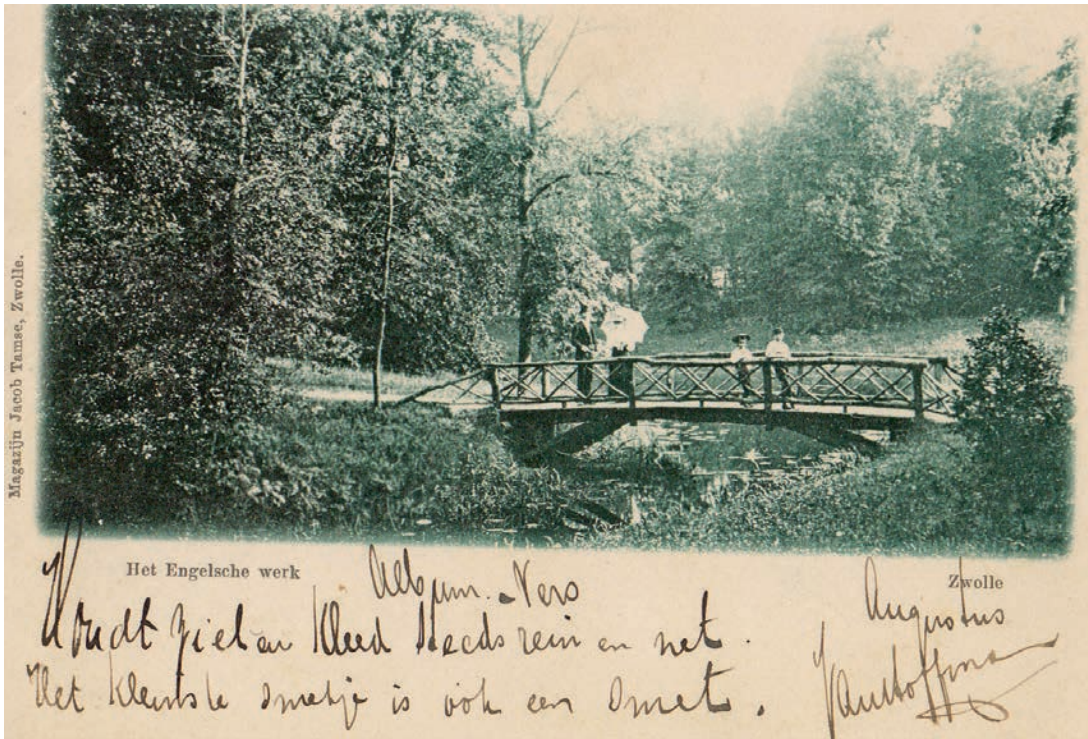 Magazijn Jacob Tamse, Zwolle.
Het Engelsche werk
Zwolle
Album-Vers
Augustus
Houdt ziel en kleed steeds rein en net.
Het kleinste smetje is ook een smet.